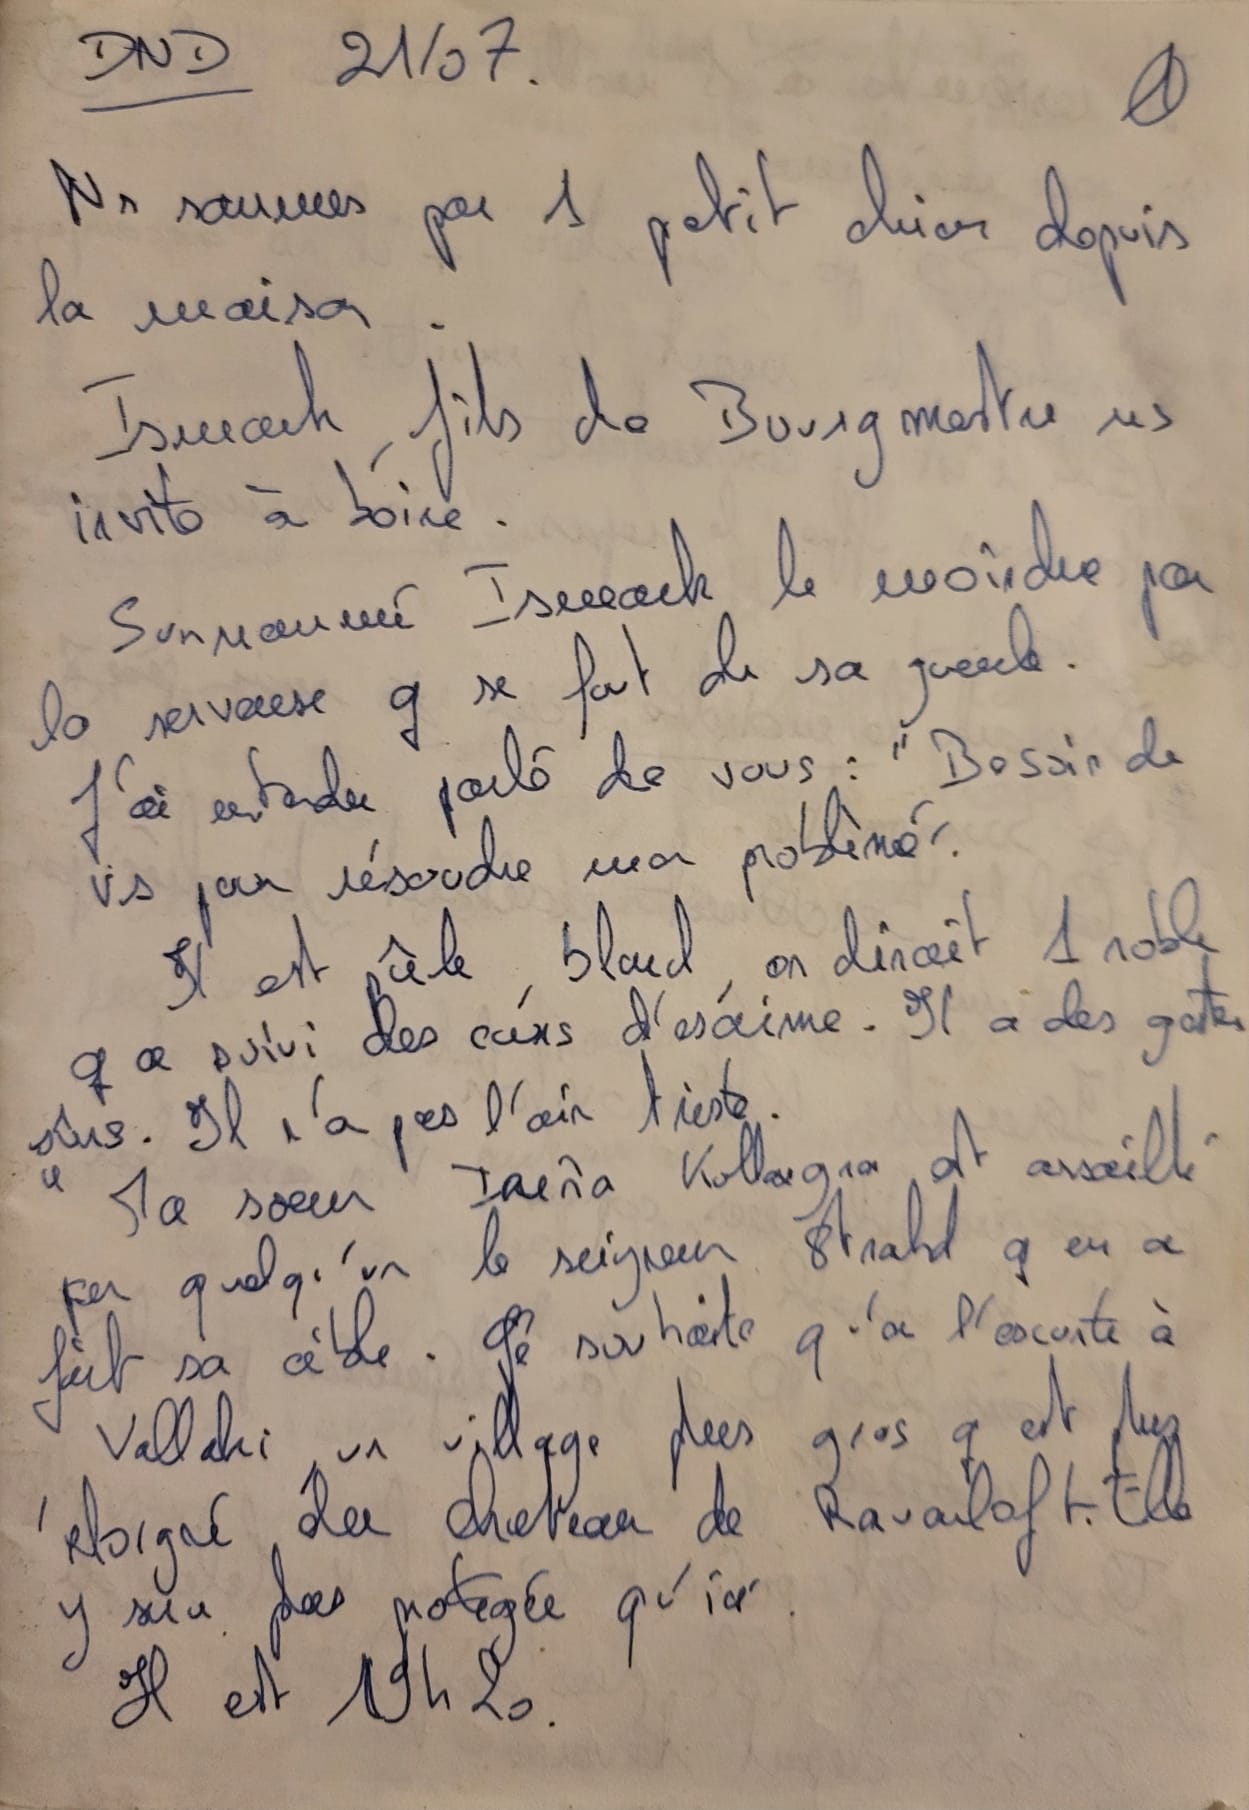 DND 21/07.
1
Ns sommes par 1 petit chien depuis
la maison.
Ismark, fils de Bourgmestre ns
invite à boire.
Surnommé Ismark le moindre par
la serveuse q se fout de sa gueule.
J'ai entendu parlé de vous : "Besoin de
vs pour résoudre mon problème".
Il est pâle, blond, on dirait 1 noble
q a suivi des cours d'escrime. Il a des
Il n'a pas l'air triste.
" Ma soeur Irena Kollagna est assailli
par quelqu'un le seigneur Strahd q en a
fait sa cible. Je souhaite q'on l'escorte à
Vallaki un village plus gros q est plus
éloigné du chateau de Ravanloft. Elle
y sera plus protégée qu'ici.
Il est 19h20.